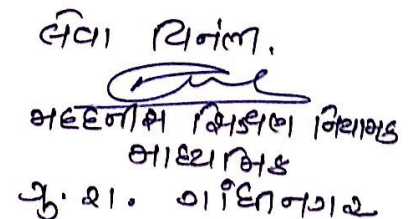 લેવા વિનંતી.
મદદનીશ શિક્ષણ નિયામક
માધ્યમિક
ગુ. રા. ગાંધીનગર